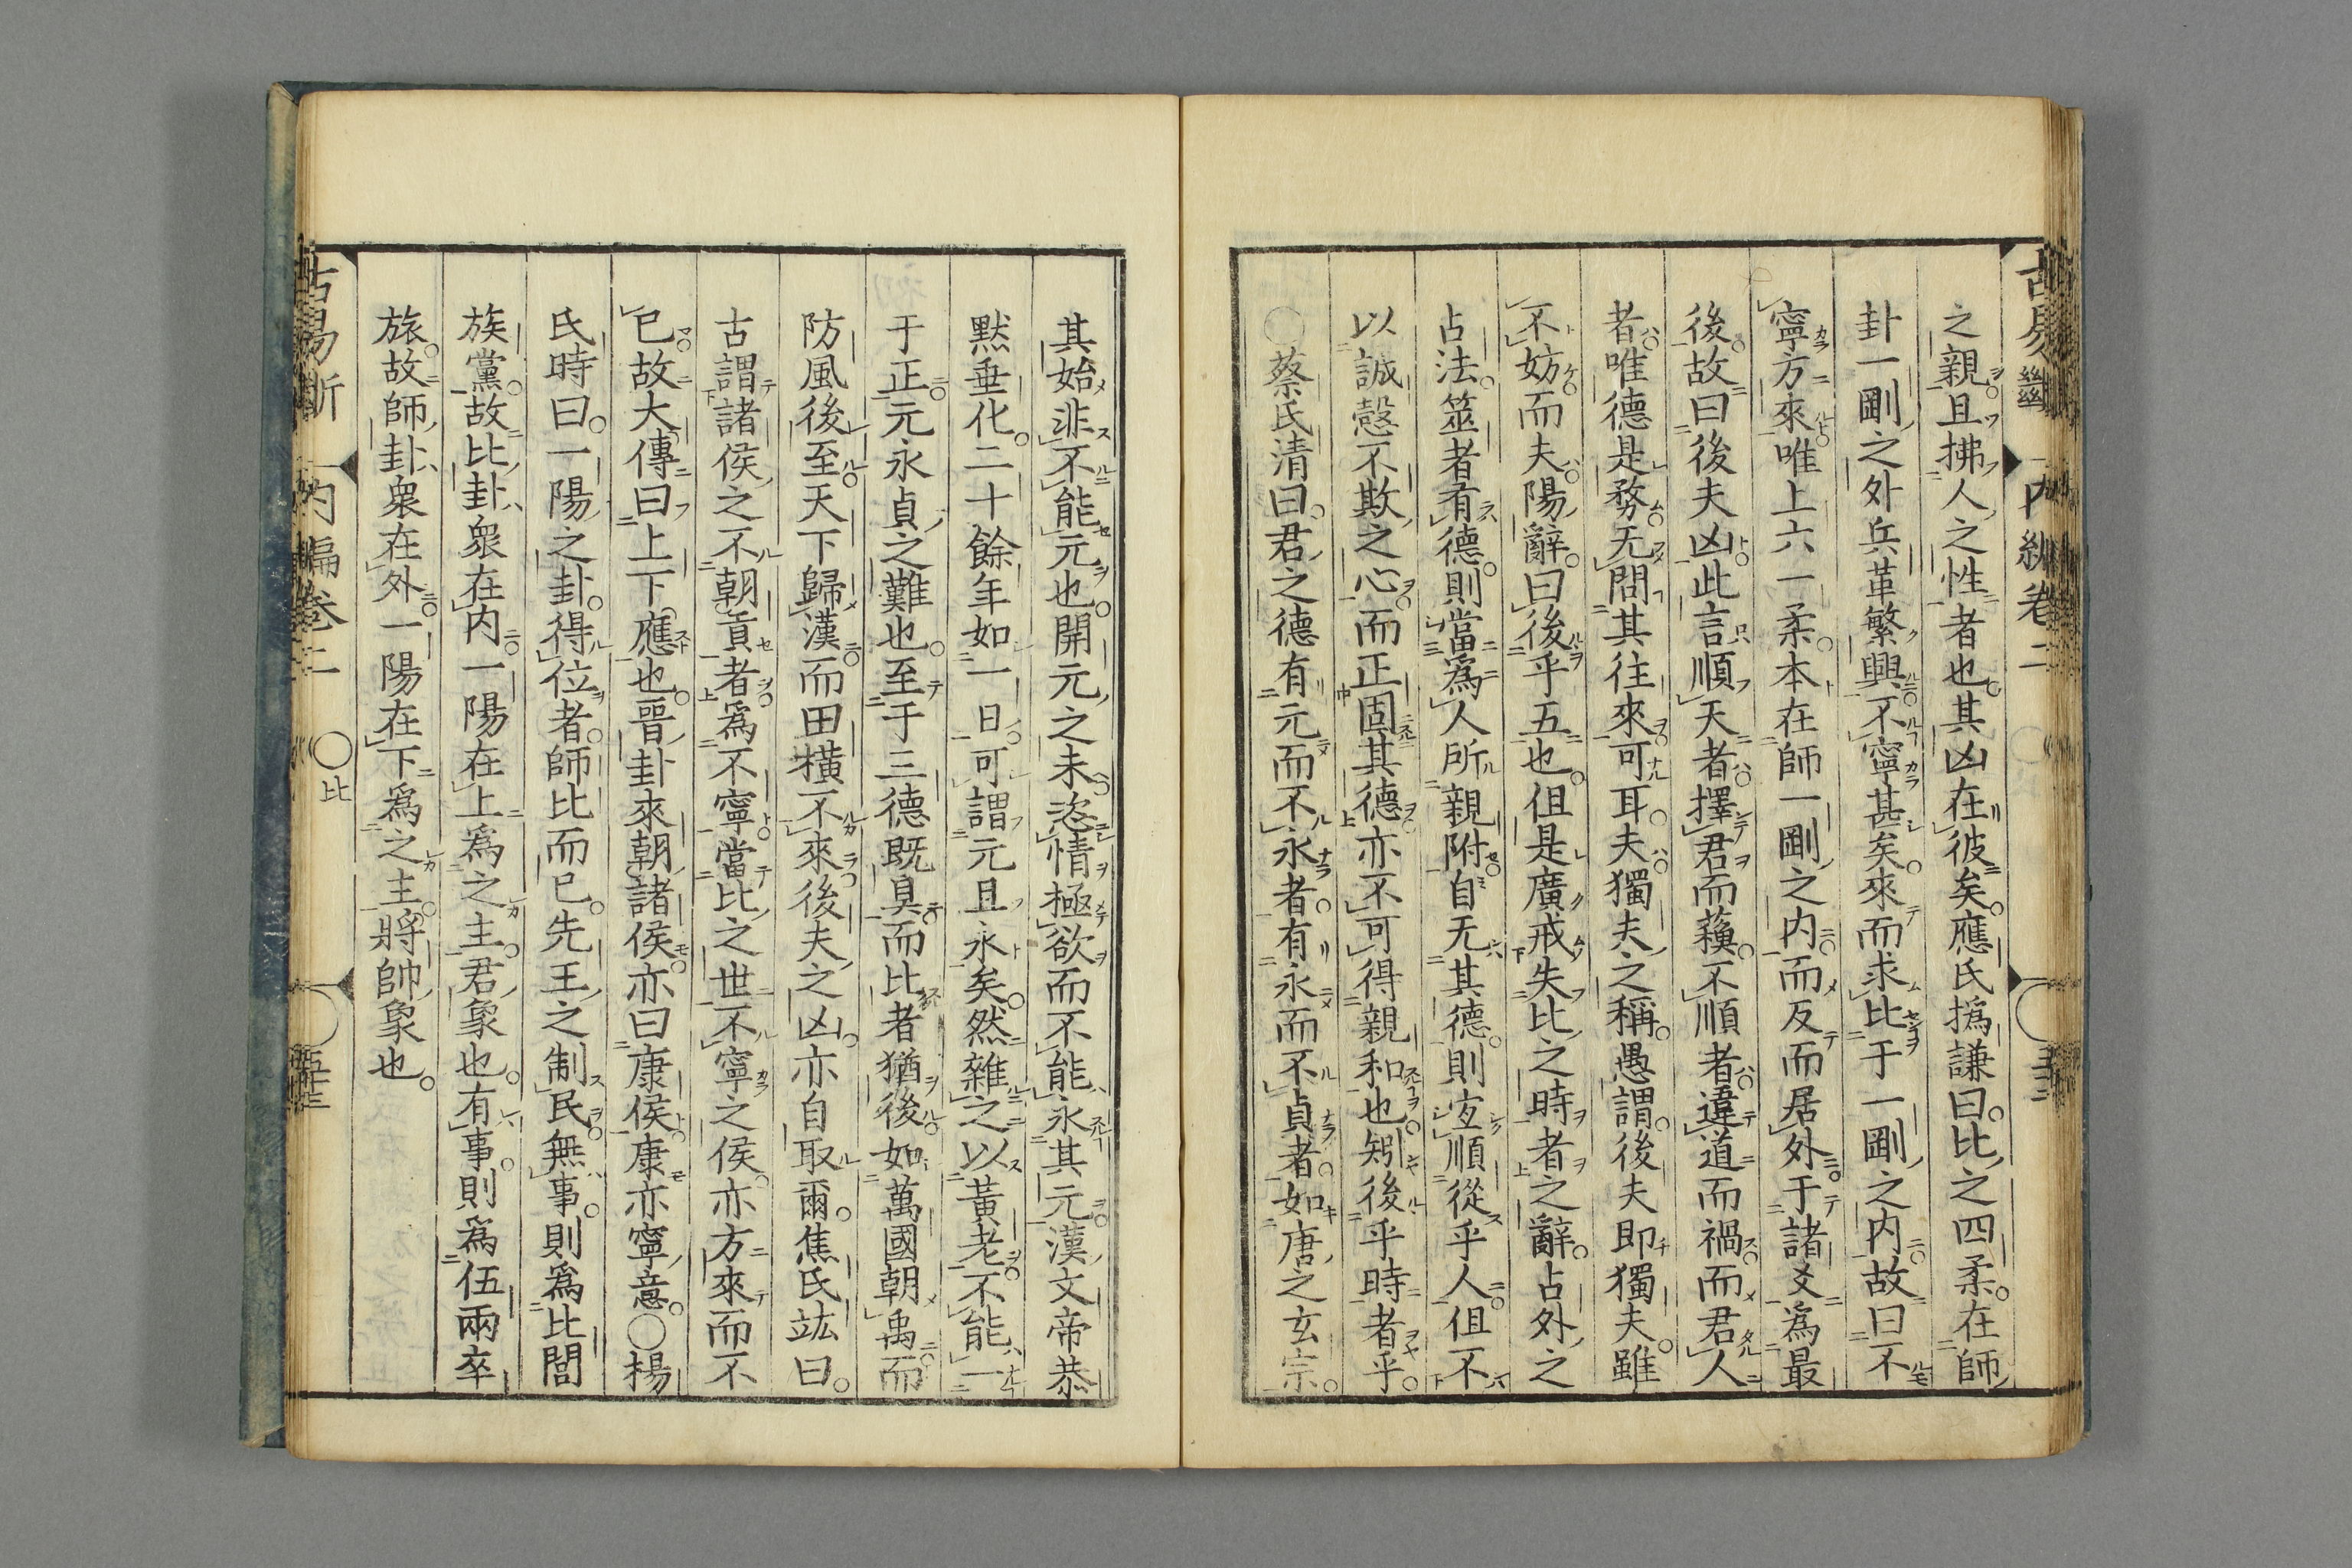 之親且拂人之性者也其凶在彼矣應氏撝謙曰比之四柔在師
卦一剛之外兵革繁興不寧甚矣來而求比于一剛之内故曰不
寧方來唯上六一柔本在師一剛之内而反而居外于諸爻爲最
後故曰後夫凶此言順天者擇君而蘓不順者違道而禍而君人
者唯德是務无問其往來可耳夫獨夫之稱愚謂後夫即獨夫雖
不妨而夫陽辭曰後乎五也但是廣戒失比之時者之辭占外之
占法筮者有德則當爲人所親附自无其德則宐順從乎人但不
以誠愨不欺之心而正固其德亦不可得親和也矧後乎時者乎
○蔡氏清曰君之德有元而不永者有永而不貞者如唐之玄宗
其始非不能元也開元之未恣情極欲而不能永其元漢文帝恭
默垂化二十餘年如一日可謂元且永矣然雜之以黃老不能一
于正元永貞之難也至于三德既具而比者猶後如萬國朝禹而
防風後至天下歸漢而田橫不來後夫之凶亦自取爾焦氏竑曰
古謂諸侯之不朝貢者爲不寧當比之世不寧之侯亦方來而不
已故大傳曰上下應也晉卦來朝諸侯亦曰康侯康亦寧意○楊
氏時曰一陽之卦得位者師比而已先王之制民無事則爲比閭
族黨故比卦衆在内一陽在上爲之主君象也有事則爲伍兩卒
旅故師卦衆在外一陽在下爲之主將帥象也
古易斷 内編卷二 ○比